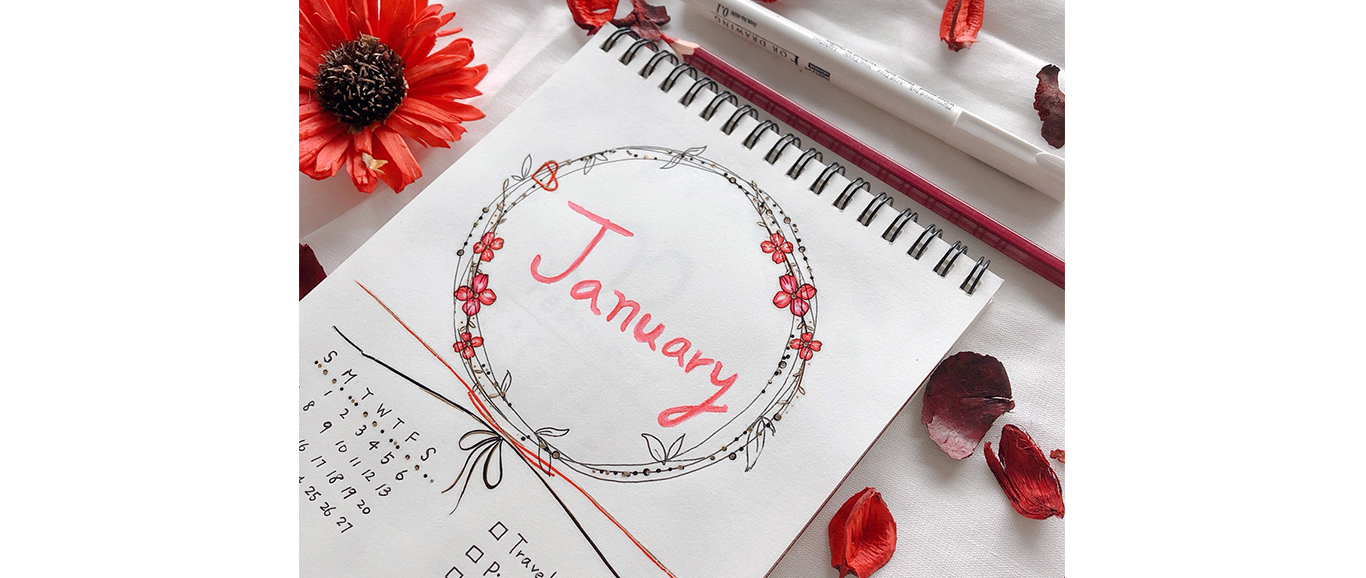 0.1
FOR DRAWING
January
S M T W T F S
1 2 3 4 5 6
8 9 10 11 12 13
16 17 18 19 20
25 26 27
Travel
p.